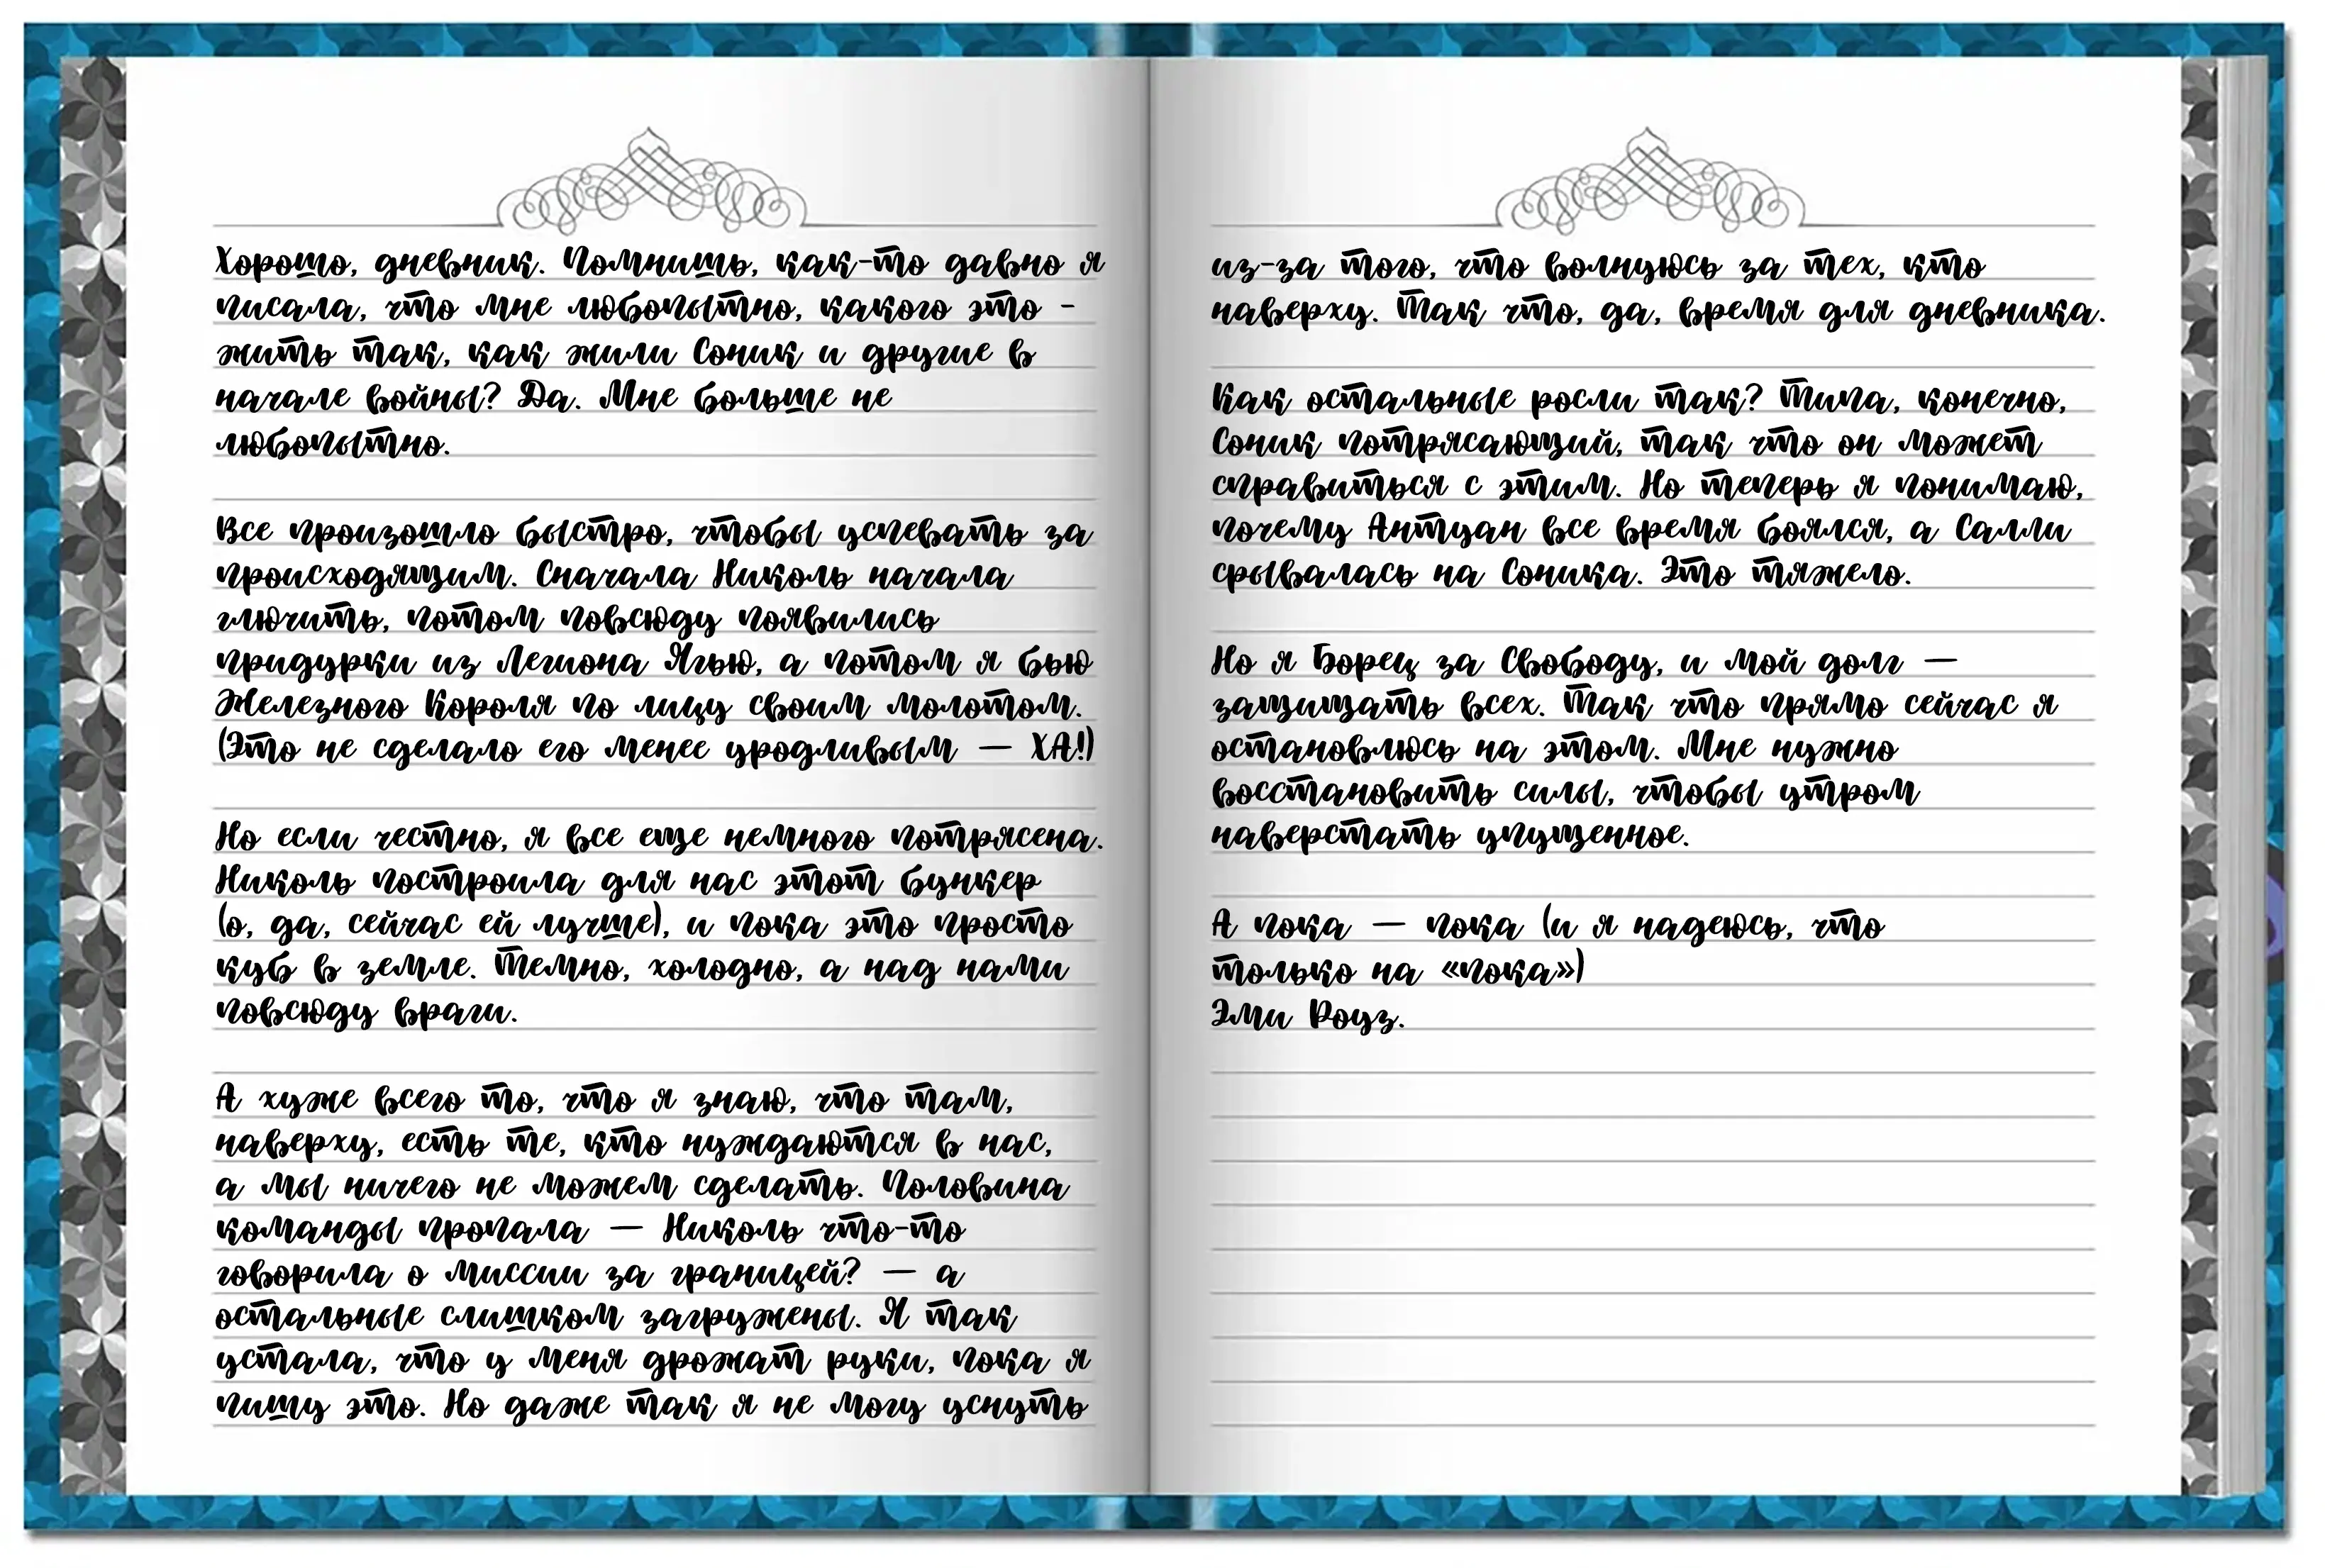 Хорошо, дневник. Помнишь, как-то давно я
писала, что мне любопытно, какого это -
жить так, как жили Соник и другие в
начале войны? Да. Мне больше не
любопытно.
Все произошло быстро, чтобы успевать за
происходящим. Сначала Николь начала
глючить, потом повсюду появились
придурки из Легиона Ягью, а потом я бью
Железного Короля по лицу своим молотом.
(Это не сделало его менее уродливым — ХА!)
Но если честно, я все еще немного потрясена.
Николь построила для нас этот бункер
(о, да, сейчас ей лучше), и пока это просто
куб в земле. Темно, холодно, а над нами
повсюду враги.
А хуже всего то, что я знаю, что там,
наверху, есть те, кто нуждаются в нас,
а мы ничего не можем сделать. Половина
команды пропала — Николь что-то
говорила о миссии за границей? — а
остальные слишком загружены. Я так
устала, что у меня дрожат руки, пока я
пишу это. Но даже так я не могу уснуть
из-за того, что волнуюсь за тех, кто
наверху. Так что, да, время для дневника.
Как остальные росли так? Типа, конечно,
Соник потрясающий, так что он может
справиться с этим. Но теперь я понимаю,
почему Антуан все время боялся, а Салли
срывалась на Соника. Это тяжело.
Но я Борец за Свободу, и мой долг —
защищать всех. Так что прямо сейчас я
остановлюсь на этом. Мне нужно
восстановить силы, чтобы утром
наверстать упущенное.
А пока — пока (и я надеюсь, что
только на «пока»)
Эми Роуз.